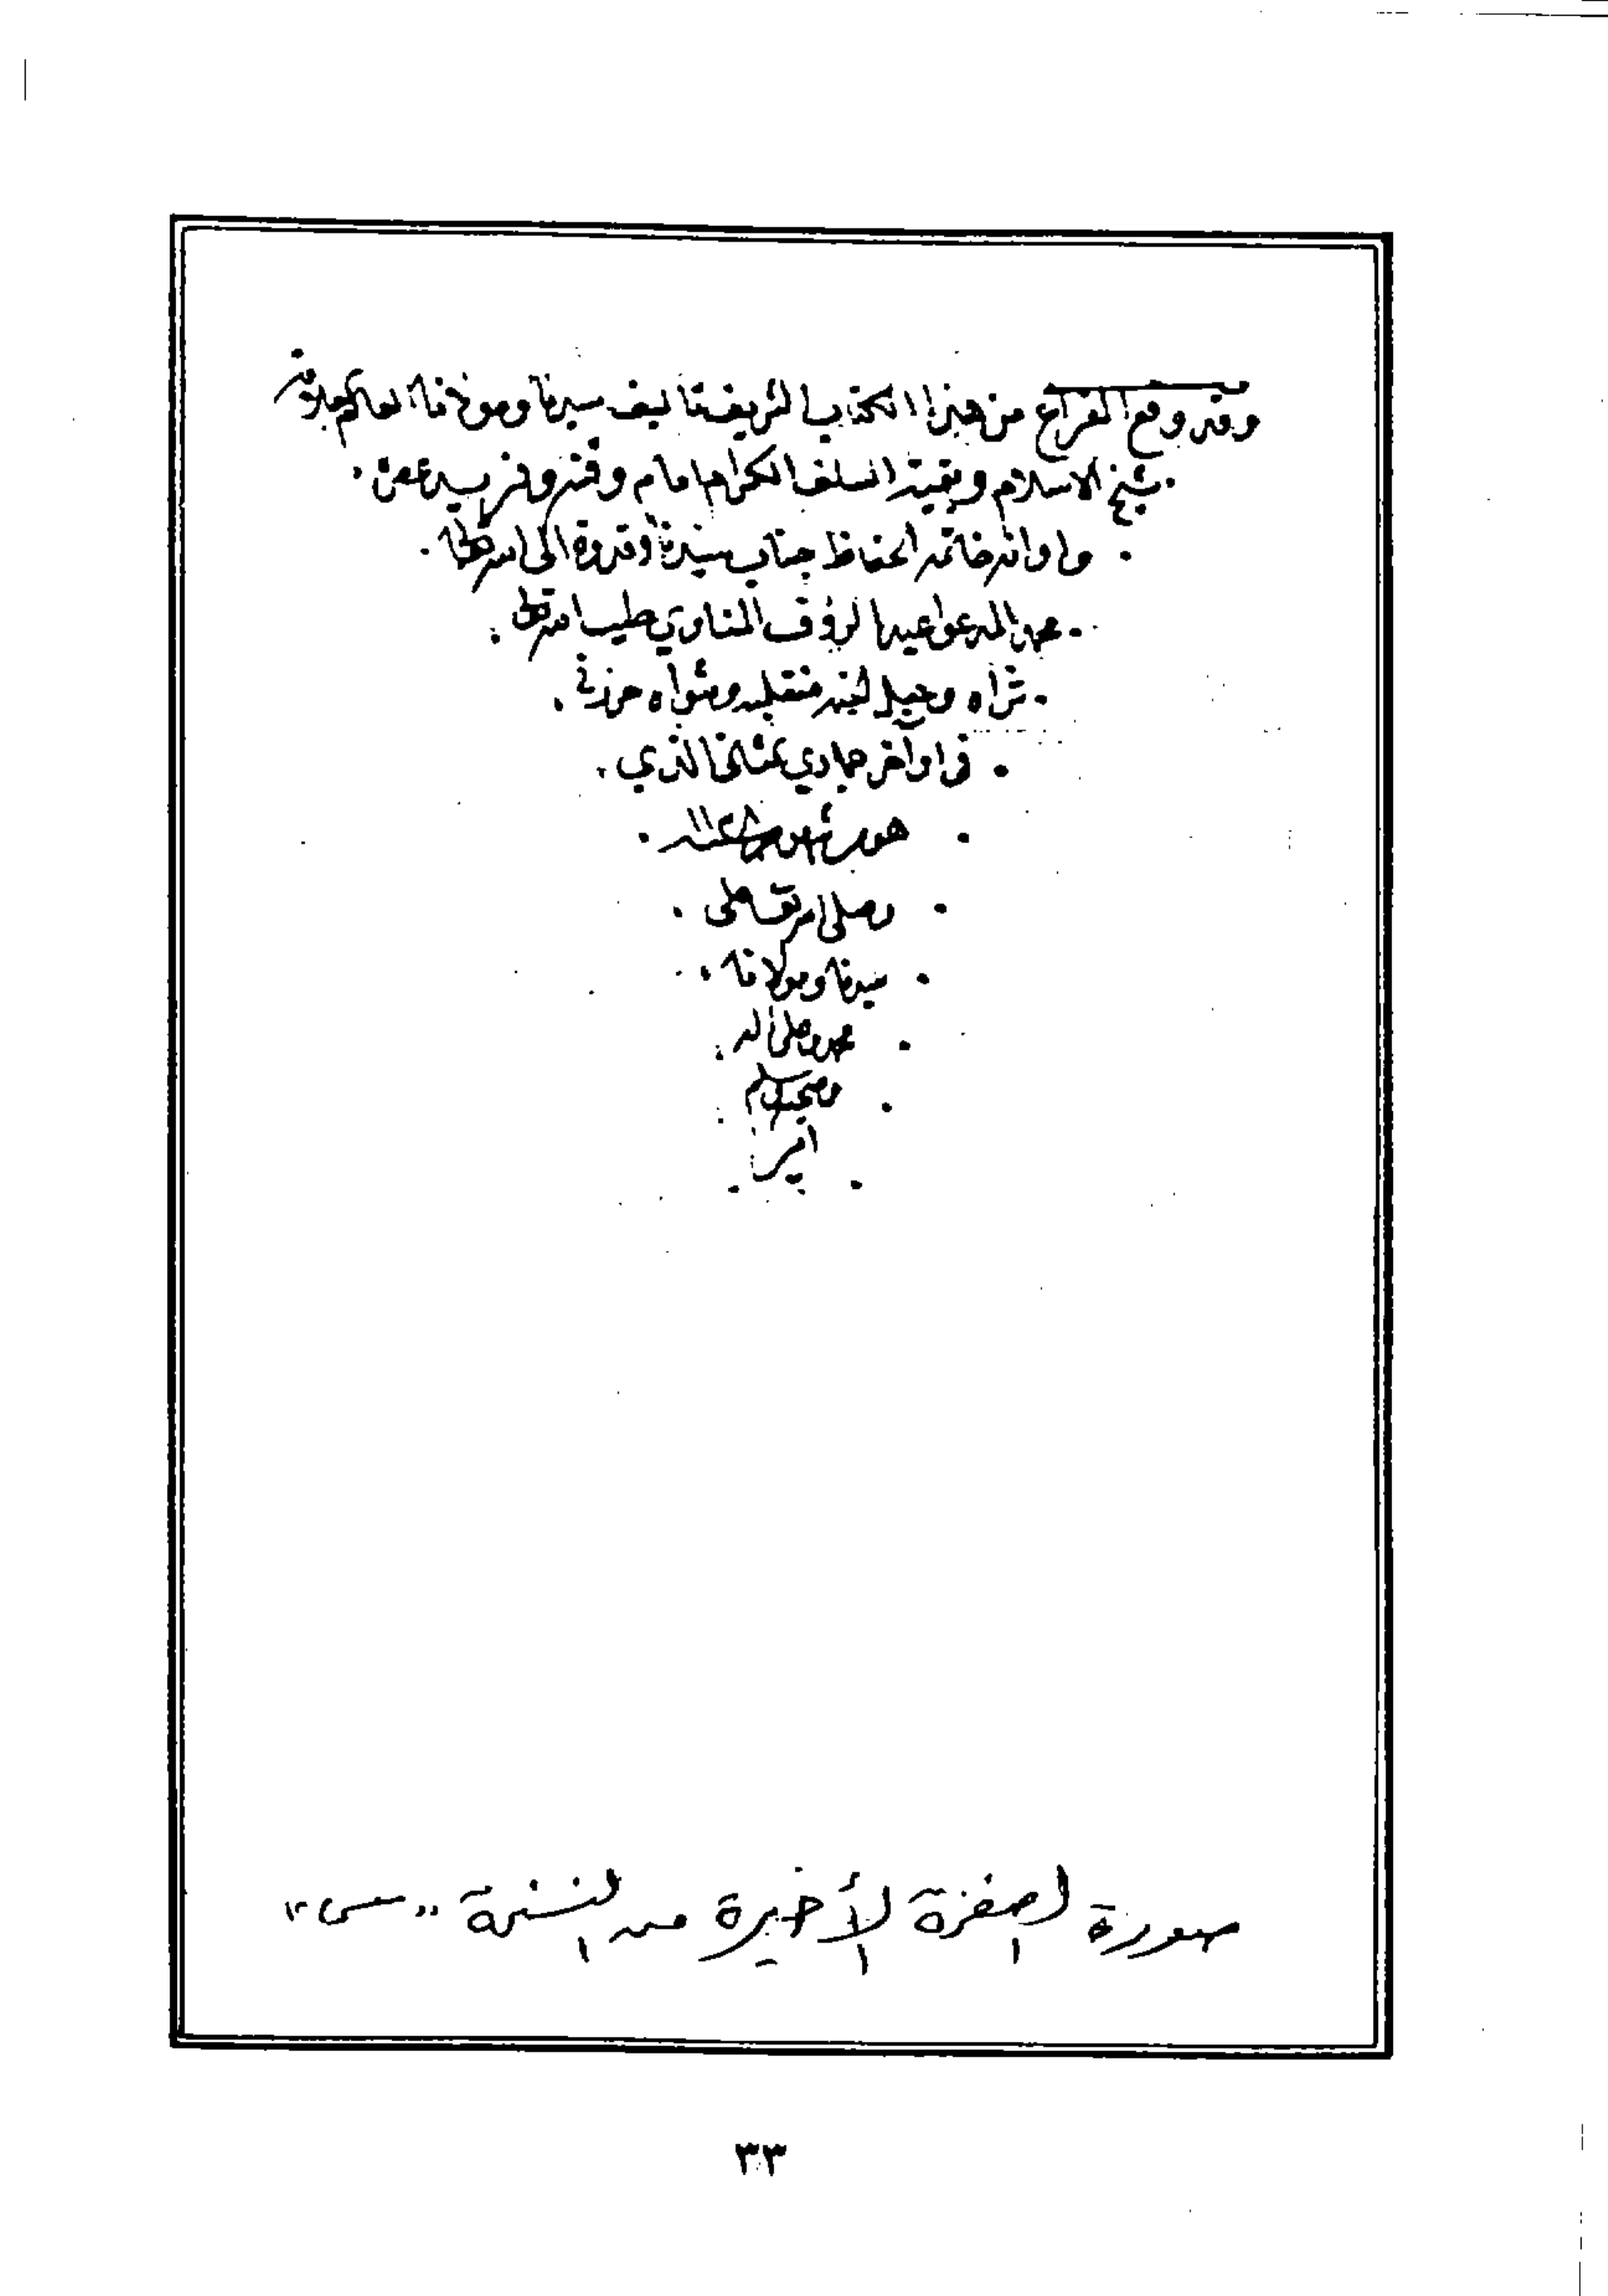 وقد وقع الفراغ من هذا الكتاب الشريف تأليف سيدنا ومولانا العالم العلامة
شيخ الاسلام وبقية السلف الكرام امام وقته وفريد عصره
واوانه خاتمة الحفاظ جناب سيدنا وقدوتنا الى الله تعالى
محمد المدعو عبد الرؤف المناوي طيب الله تعالى
ثراه وجعل الجنة منقلبه ومثواه
في اواخر جمادي الذي
هو من شهور سنة ١١٢٨
وصلى الله تعالى على
سيدنا ومولانا
محمد وعلى اله
وصحبه وسلم
امين
صورة الصفحة الأخيرة من النسخة «س»
٣٣